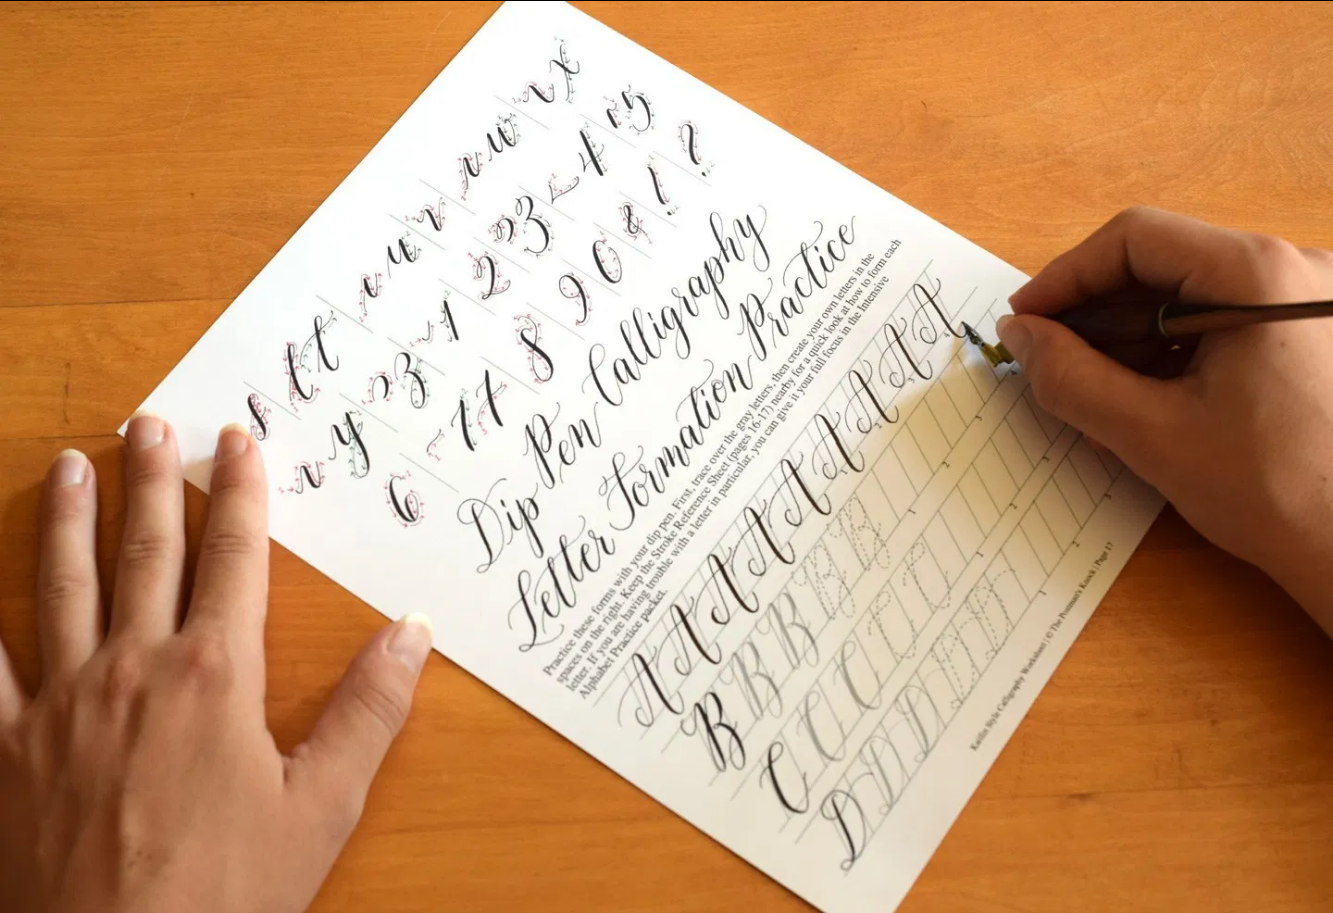 s t t u v w x
y z 1 2 3 4 5
6 7 8 9 0 & ! ?
Dip Pen Calligraphy
Letter Formation Practice
Practice these forms with your dip pen. First, trace over the gray letters, then create your own letters in the
spaces on the right. Keep the Stroke Reference Sheet (pages 16-17) nearby for a quick look at how to form each
letter. If you are having trouble with a letter in particular, you can give it your full focus in the Intensive
Alphabet Practice packet.
A A A A A A A A A
B B B B B
C C C C C
D D D D D
Kaitlin Style Calligraphy Worksheet | © The Postman's Knock | Page 17